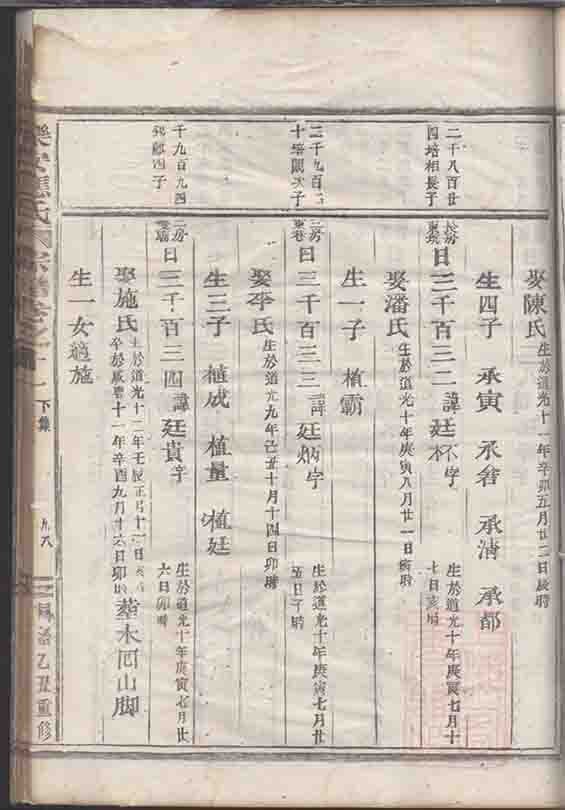 娶陳氏 生於道光十一年辛卯五月廿二日辰時
生四子 承寅 承 承清 承都
二千八百廿
四培相長子
長房
日三千百三二諱廷 字 生於道光十年庚寅七月十
七日亥時
娶潘氏 生於道光十年庚寅八月廿一日 時
生一子 植霸
二千九百
十培 次子
三房
日三千百三三諱廷炳字 生於道光十年庚寅七月廿
五日子時
娶李氏 生於道光九年己丑十月十四日卯時
生三子 植成 植量 植廷
千九百九四
四子
二房
日三千百三四諱廷貴字 生於道光十年庚寅七月廿
六日卯時
娶施氏 生於道光十二年壬辰正月十一日亥時
卒於咸豐十一年辛酉九月廿六日卯時 葬木 山脚
生一女適施
樂安 氏宗譜卷之十
下集
九八
民國乙丑重修